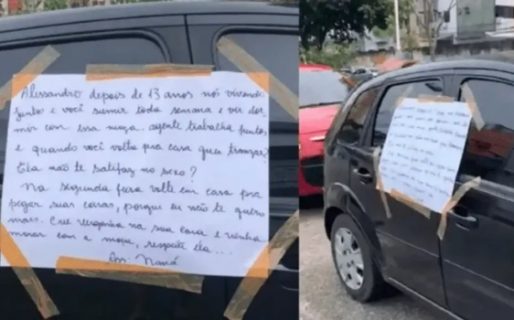 Alessandro depois de 13 anos nós vivendo
juntos e você sumir toda semana e vir dor
mir com essa moça, agente trabalha juntos
e quando você volta pra casa quer transar?
Ela não te satisfaz no sexo?
Na segunda feira volte em casa pra
pegar suas coisas, porque eu não te quero
mais. Crie vergonha na sua cara e venha
morar com a moça, respeite ela...